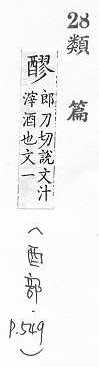 28
類篇
醪 郎刀切說文汁
滓酒也文一
(酉部.
p.549)